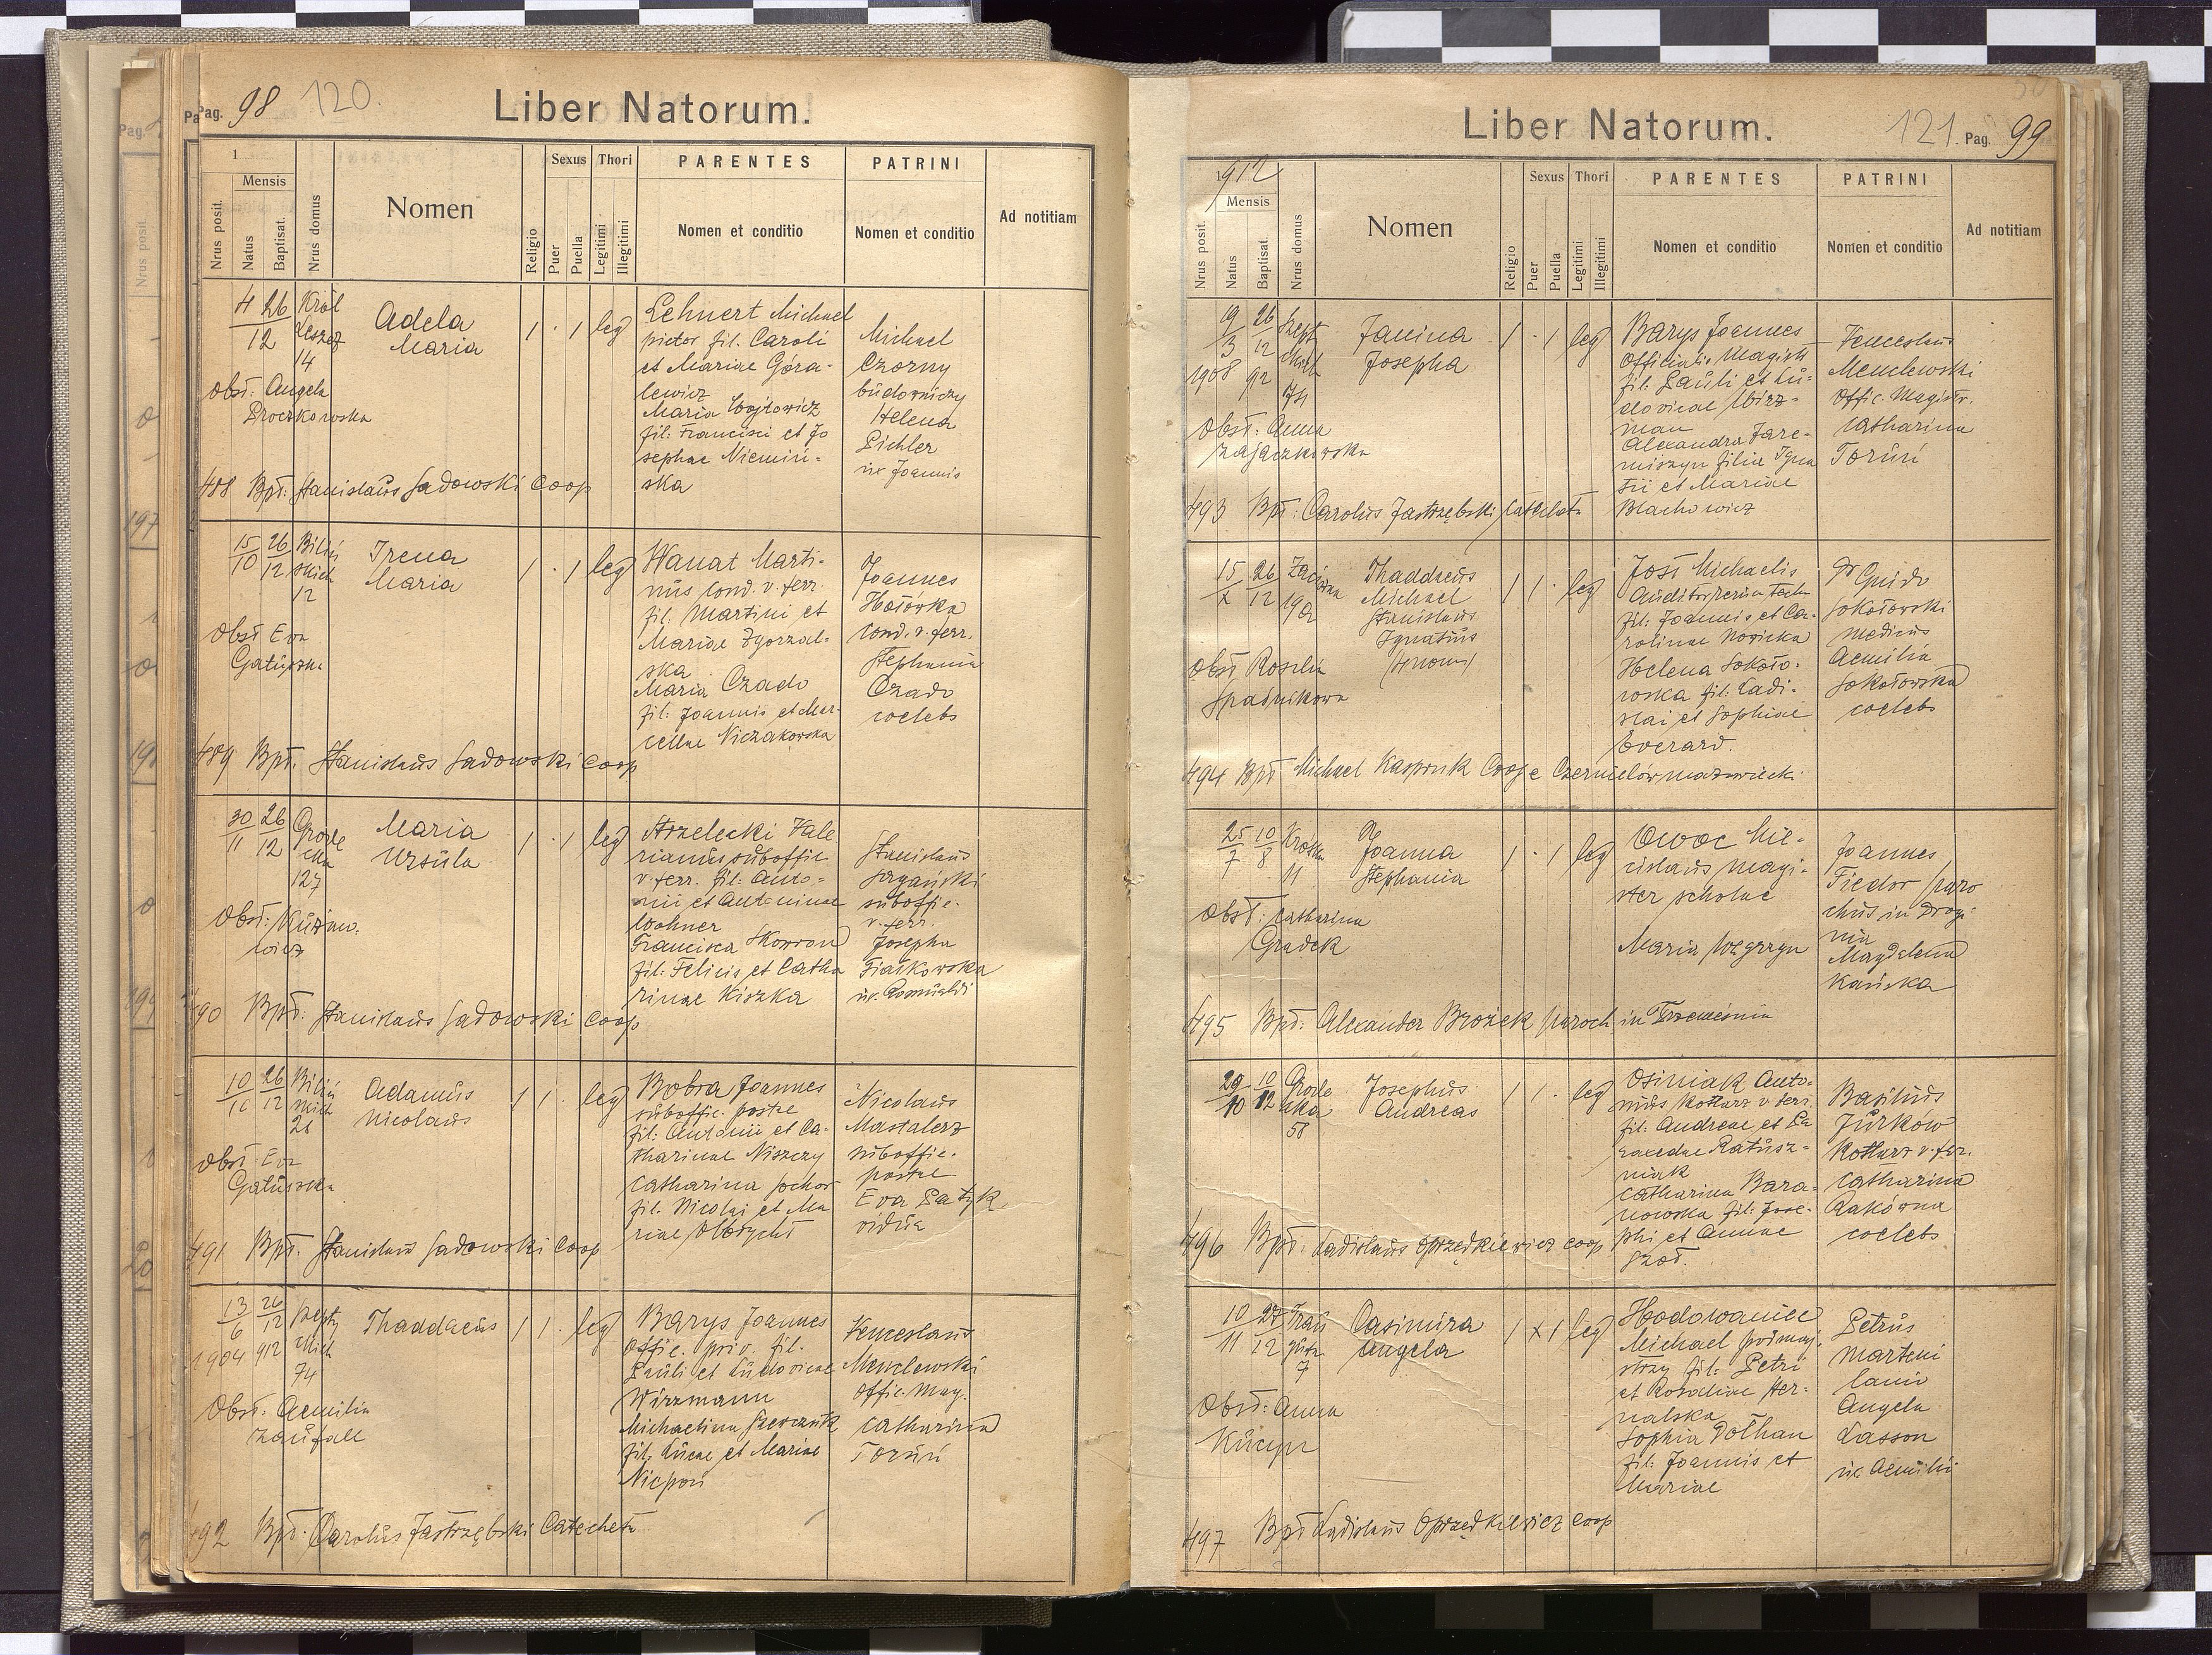 Pag. 98 120.
Liber Natorum.
1
Mensis
Nrus posit.
Natus
Baptisat.
Nrus domus
Nomen
Religio
Sexus
Puer
Puella
Thori
Legitimi
Illegitimi
PARENTES
Nomen et conditio
PATRINI
Nomen et conditio
Ad notitiam
4 26
12
Król
Leszcz
14
Adela
Maria
1 · 1 leg
Lehnert Michael
pictor fil. Caroli
et Mariae Góra-
lewicz
Maria Wojtowicz
fil: Francisci et Jo
sephae Niemiń-
ska
Michael
Czorny
budowniczy
Helena
Pichler
ux Joannis
Obst. Angela
Proczkowska
488 Bpt: Stanislaus Sadowski Coop
15 26
10 12
Biliń
skich
12
Irena
Maria
1 · 1 leg
Wanat Marti-
nus cond. v. ferr.
fil. Martini et
Mariae Zgorzal-
ska
Maria Czado
fil: Joannis et Mar-
cellae Niczakowska
Joannes
Hołówka
cond. v. ferr.
Stephania
Czado
coelebs
Obst Eva
Gałuszka
489 Bpt. Stanislaus Sadowski Coop
30 26
11 12
Grode
cka
127
Maria
Ursula
1 · 1 leg
Strzelecki Vale
rianus suboffic
v. ferr. fil: Anto-
nii et Antoninae
Wohner
Francisca Skowron
fil: Felicis et Catha
rinae Kiszka
Stanislaus
suboffic.
v. ferr.
Josepha
Fiałkowska
ux. Romualdi
Obst: Kuźmo-
wicz
490 Bpt: Stanislaus Sadowski Coop
10 26
12
Biliń
skich
21
Adamus
Nicolaus
1 1 · leg
Bobra Joannes
suboffic. postae
fil: Antonii et Ca-
tharinae Niszczy
Catharina
fil. Nicolai et Ma
riae Olbrycht
Nicolaus
Mastalerz
suboffic.
postae
Eva Patyk
vidua
Obst. Eva
Gałuszka
491 Bpt. Stanislaus Sadowski Coop
13 26
6 12
1904 912
Szepty
Mich
74
Thaddaeus
1 1 · leg
Barys Joannes
Offic. priv. fil.
Pauli et Ludovicae
Wirzmann
Michaelina Szewczuk
fil. Lucae et Mariae
Nicpoń
Venceslaus
Menclewski
Offic. Mag.
Catharina
Toruń
Obst: Aemilia
Zaufall
492 Bpt: Carolus Jastrzębski Catecheta
Liber Natorum.
121. Pag. 99
1912
Mensis
Nrus posit.
Natus
Baptisat.
Nrus domus
Nomen
Religio
Sexus
Puer
Puella
Thori
Legitimi
Illegitimi
PARENTES
Nomen et conditio
PATRINI
Nomen et conditio
Ad notitiam
19 26
3 12
1908 912
Szept
Mich
74
Janina
Josepha
1 · 1 leg
Barys Joannes
Officialis Magistr
fil: Pauli et Lu-
dovicae Wirz-
man
Alexandra Jare-
miszyn filia Igna
tii et Mariae
Blachowicz
Venceslaus
Menclewski
Offic. Magistr.
Catharina
Toruń
Obst: Anna
Zajączkowska
493 Bpt: Carolus Jastrzębski Catecheta
15 26
X 12
192
Thaddaeus
Michael
Stanislaus
Ignatius
Jost Michaelis
fil: Joannis et Ca-
rolinae Nowicka
Helena Sokoło-
wska fil: Ladi-
slai et Sophiae
Everard.
1 1 · leg
Dr Guido
Sokołowski
medicus
Aemilia
Sokołowska
coelebs
Obst Roselia
494 Bpt Michael Kaspruk Coop e Czernielów mazowiecki
25 10
7 8
11
Joanna
Stephania
1 · 1 leg
Owoc Mie-
cislaus magi-
ster scholae
Maria Węgrzyn
Joannes
Fiedor paro
chus in Drogi-
nia
Magdalena
Kańska
Obst: Catharina
Gradek
495 Bpt: Alexander Brożek paroch in Trzemeśnia
29 10
10 12
Grode
cka
58
Josephus
Andreas
1 1 · leg
Osiniak Anto-
nius kotlarz v ferr.
fil: Andreae et Pa
raxedae Ratusz-
niak
Catharina Bara-
nowska fil: Jose-
phi et Annae
Szot.
Basilius
Jurków
Kotlarz v. fer.
Catharina
Rakówna
coelebs
496 Bpt: Ladislaus Oprzędkiewicz coop
10 27
11 12
7
Casimira
Angela
1 x 1 leg
Hodowaniec
Michael podmaj-
strzy fil: Petri
et Rosaliae Her-
nalska
Sophia Dolhan
fil: Joannis et
Mariae
Petrus
Marteni
lanio
Angela
Lasson
ux. Aemilii
Obst: Anna
Kucyn
497 Bpt Ladislaus Oprzędkiewicz coop